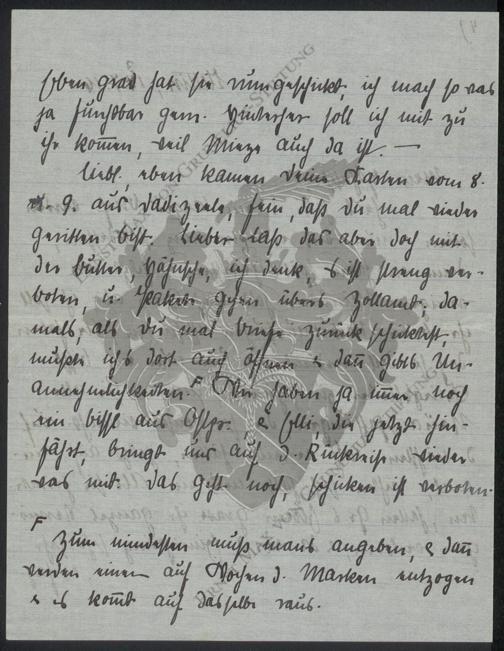 Eben grad hat sie rumgeschickt, ich mach so was
ja furchtbar gern. Hinterher soll ich mit zu
ihr kom̄en, weil Mieze auch da ist. —
Liebl., eben kamen deine Karten vom 8.
u. 9. aus Dadizeele, fein, daß du mal wieder
geritten bist. Lieber laß das aber doch mit
der Butter, ich denk, s ist streng ver-
boten, u. Pakete gehen übers Zollamt; da-
mals, als du mal Briefe zurückschicktest,
mußte ichs dort auch öffnen & dan̄ gibts Un-
annehmlichkeiten. F Wir haben ja im̄er noch
ein bissl aus Ostpr. & Elli, die jetzt hin-
fährt, bringt uns auf d. Rückreise wieder
was mit. das geht noch, schicken ist verboten.
F
Zum mindesten muß mans angeben, & dan̄
werden einem auf Wochen d. Marken entzogen
& es kom̄t auf dasselbe raus.
4)